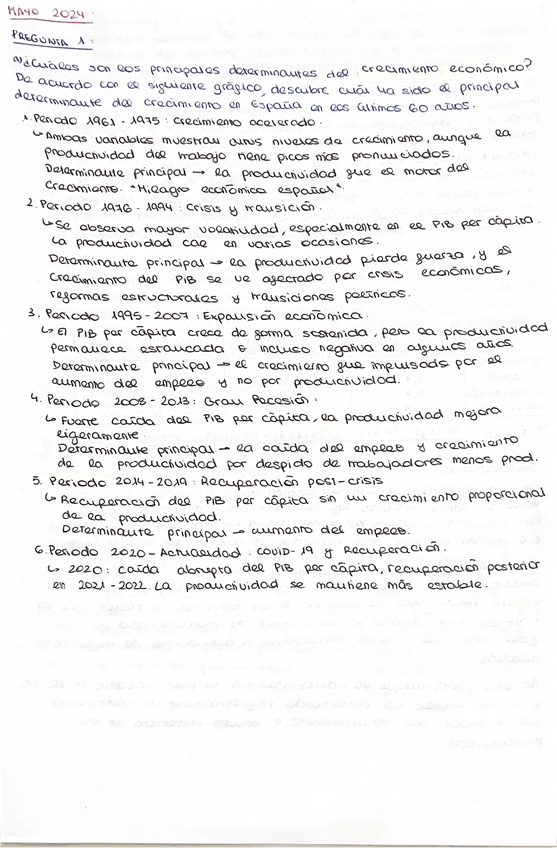 MAYO 2024.
PREGUNTA 1:
a) ¿Cuáles son los principales determinantes del crecimiento económico?
De acuerdo con el siguiente gráfico, descubre cuál ha sido el principal
determinante del crecimiento en España en los últimos 60 años.
1. Periodo 1961 - 1975: Crecimiento acelerado.
↳ Ambas variables muestran altos niveles de crecimiento, aunque la
productividad del trabajo tiene picos más pronunciados.
Determinante principal → la productividad fue el motor del
Crecimiento. "Milagro económico español".
2. Periodo 1976 - 1994: Crisis y transición.
↳ Se observa mayor volatilidad, especialmente en el PIB per cápita.
La productividad cae en varias ocasiones.
Determinante principal → la productividad pierde fuerza, y el
crecimiento del PIB se ve afectado por crisis económicas,
reformas estructurales y transiciones políticas.
3. Periodo 1995 - 2007: Expansión económica.
↳ El PIB per cápita crece de forma sostenida, pero la productividad
permanece estancada o incluso negativa en algunos años.
Determinante principal → el crecimiento fue impulsado por el
aumento del empleo y no por productividad.
4. Periodo 2008 - 2013: Gran Recesión.
↳ Fuerte caída del PIB per cápita, la productividad mejora
ligeramente.
Determinante principal → la caída del empleo y crecimiento
de la productividad por despido de trabajadores menos prod.
5. Periodo 2014 - 2019: Recuperación post-crisis
↳ Recuperación del PIB per cápita sin un crecimiento proporcional
de la productividad.
Determinante principal → aumento del empleo.
6. Periodo 2020 - Actualidad: COVID-19 y Recuperación.
↳ 2020: caída abrupta del PIB per cápita, recuperación posterior
en 2021 - 2022. La productividad se mantiene más estable.